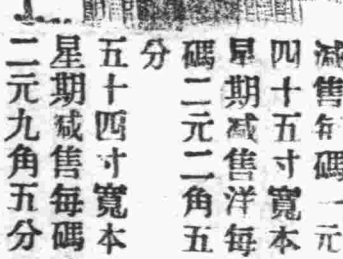 減售每碼一元
四十五寸寬本
星期减售洋每
碼二元二角五
分
五十四寸寬本
星期减售每碼
二元九角五分